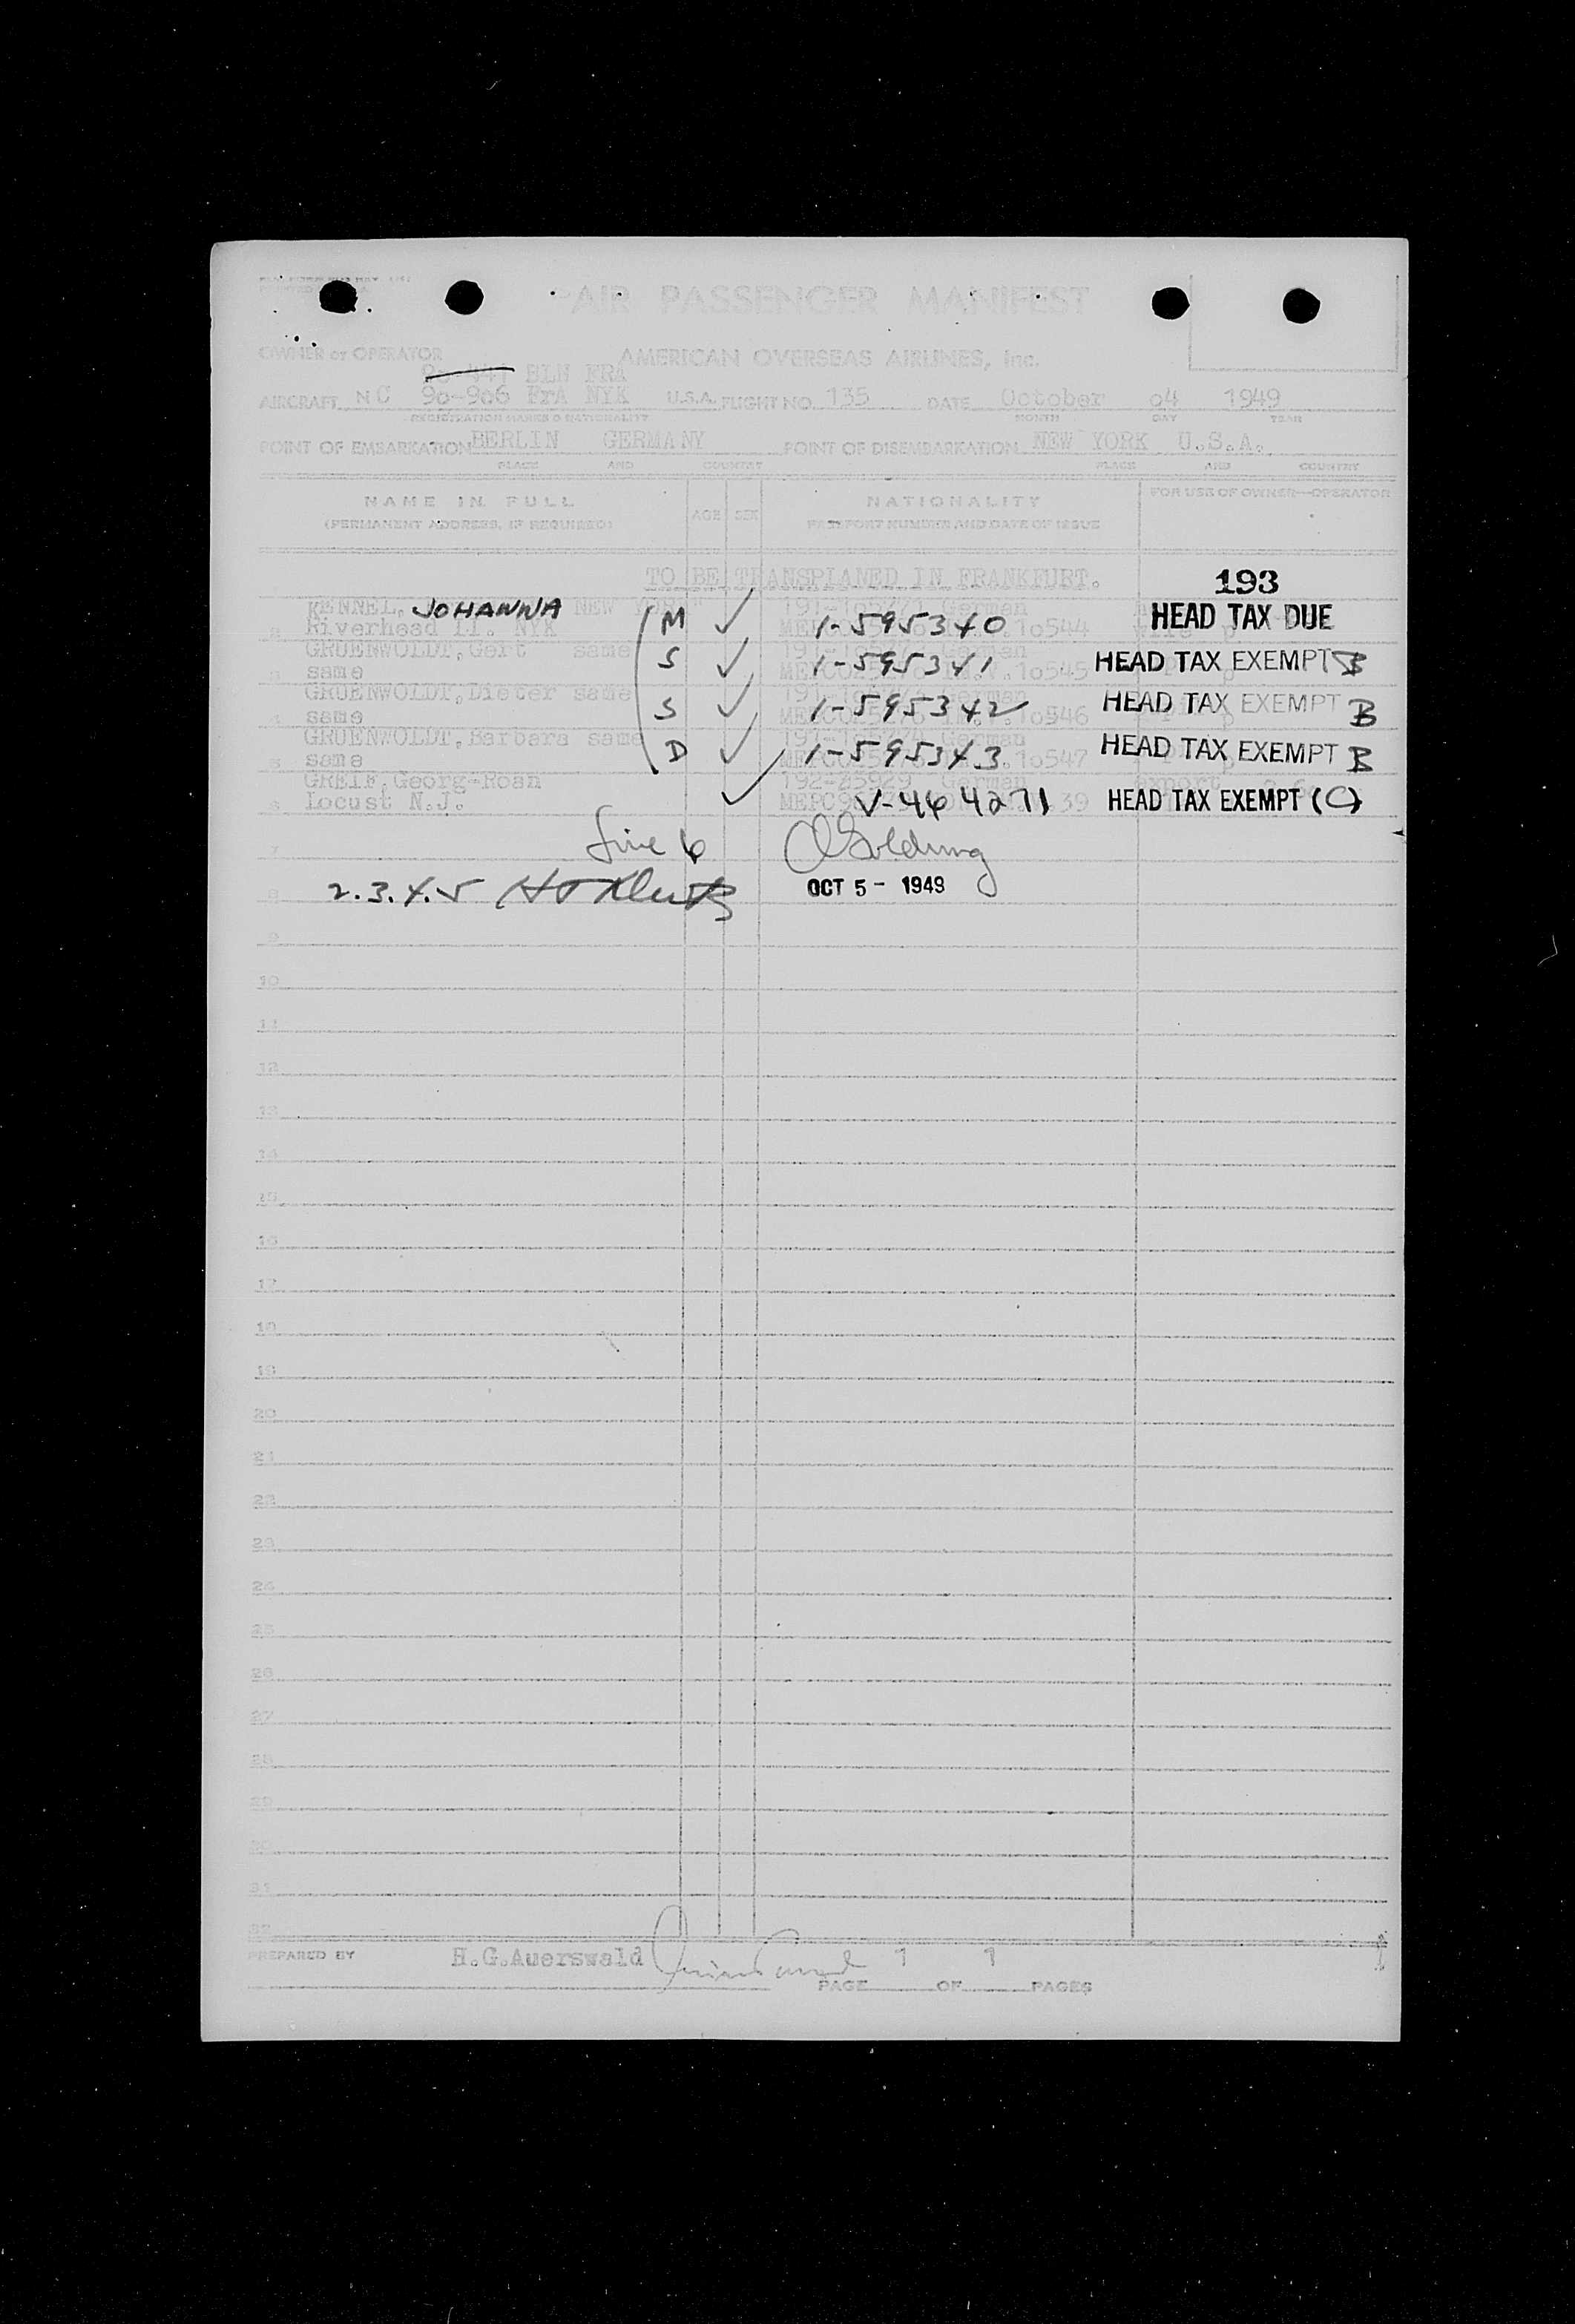 AIR PASSENGER MANIFEST
OWNER or OPERATOR AMERICAN OVERSEAS AIRLINES, Inc.
BLN FRA
AIRCRAFT NC 90-906 FRA NYK U.S.A. FLIGHT NO. 135 DATE October 04 1949
REGISTRATION MARKS & NATIONALITY MONTH DAY YEAR
POINT OF EMBARKATION BERLIN GERMANY POINT OF DISEMBARKATION NEW YORK U.S.A.
PLACE AND COUNTRY PLACE AND COUNTRY
NAME IN FULL AGE SEX NATIONALITY FOR USE OF OWNER—OPERATOR
(PERMANENT ADDRESS, IF REQUIRED) PASSPORT NUMBER AND DATE OF ISSUE
TO BE TRANSPLANED IN FRANKFURT. 193
KENNEL, JOHANNA NEW YORK German HEAD TAX DUE
2 Riverhead NYK M ✓ 1-595340 10544
GRUENWOLDT, Gert same German
3 same S ✓ 1-595341 10545 HEAD TAX EXEMPT B
GRUENWOLDT, Dieter same German
4 same S ✓ 1-595342 10546 HEAD TAX EXEMPT B
GRUENWOLDT, Barbara same German
5 same D ✓ 1-595343 10547 HEAD TAX EXEMPT B
GREIF, Georg-Roan 192-25929 German export
6 Locust N.J. ✓ V-464271 39 HEAD TAX EXEMPT (C)
7 Line 6 Golding
8 2.3.4.5 OCT 5 - 1949
9
10
11
12
13
14
15
16
17
18
19
20
21
22
23
24
25
26
27
28
29
30
31
32
PREPARED BY H.G.Auerswald 1 1
PAGE OF PAGES